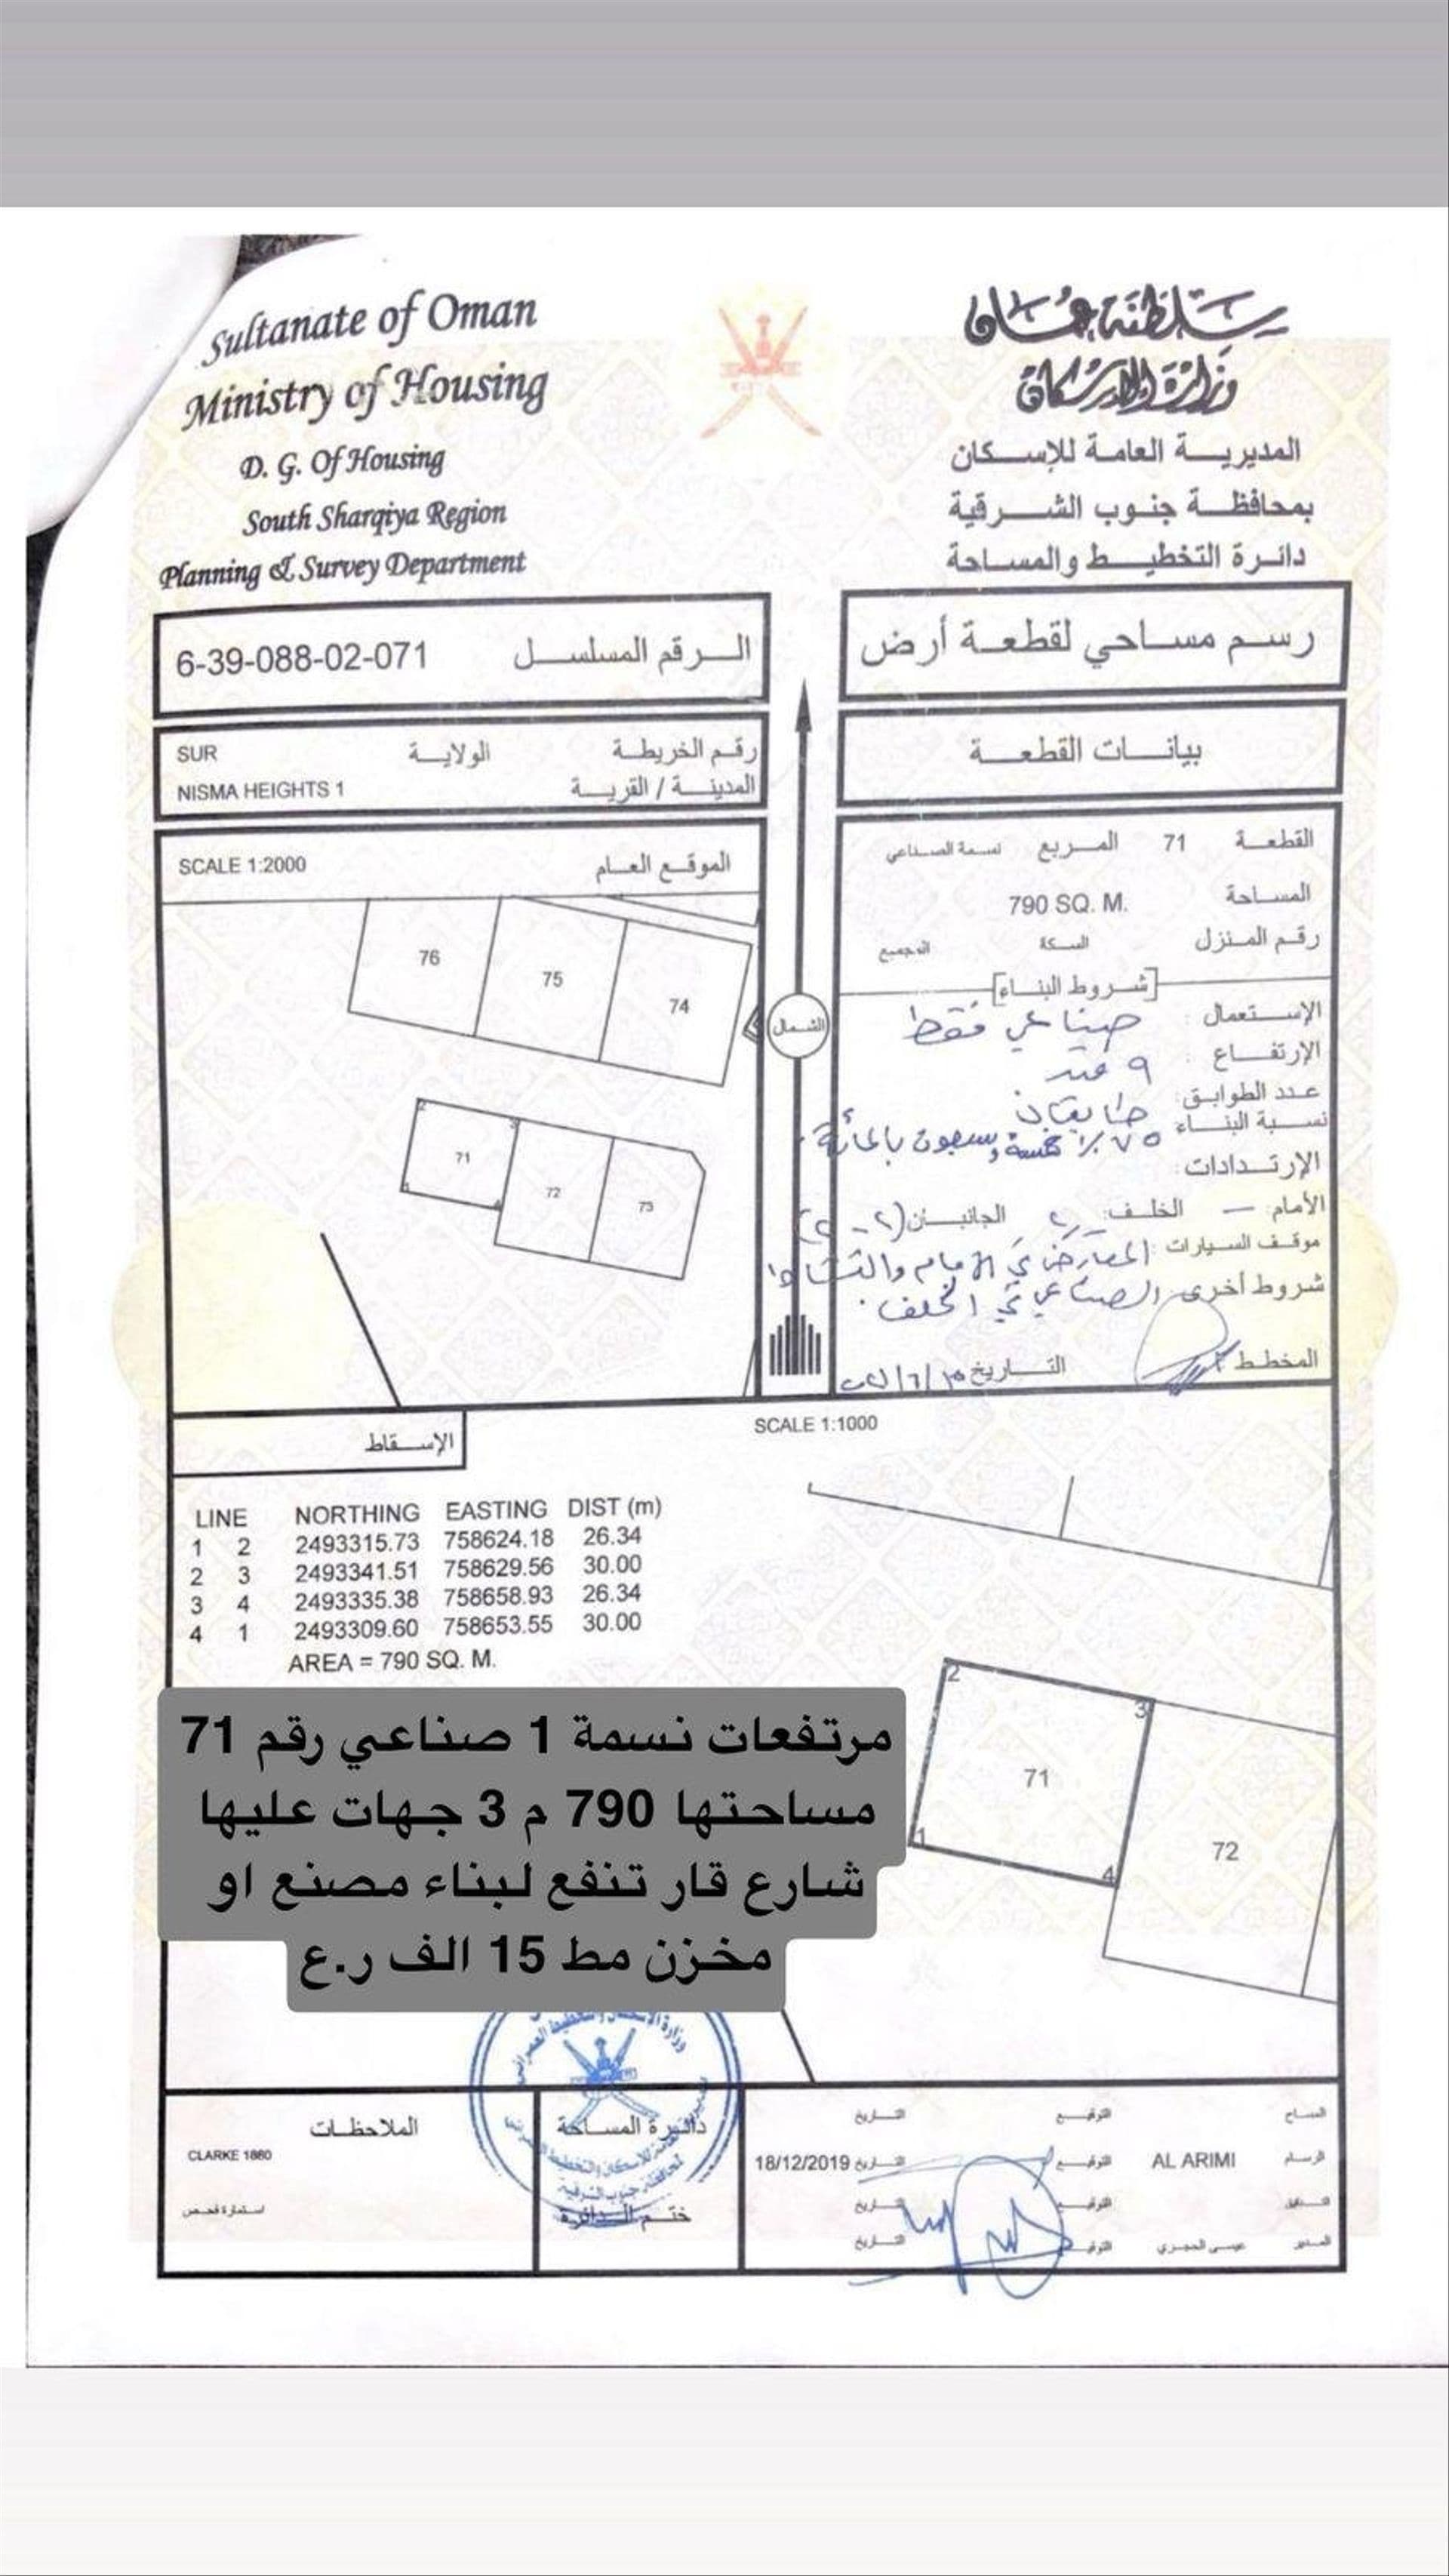 Sultanate of Oman
Ministry of Housing
D. G. Of Housing
South Sharqiya Region
Planning & Survey Department
سلطنة عمان
وزارة الإسكان
المديرية العامة للإسكان
بمحافظة جنوب الشرقية
دائرة التخطيط والمساحة
رسم مساحي لقطعة أرض
الرقم المسلسل 6-39-088-02-071
بيانات القطعة
رقم الخريطة الولاية SUR
المدينة / القرية NISMA HEIGHTS 1
القطعة 71 المربع نسمة الصناعي
المساحة 790 SQ. M.
رقم المنزل السكة المجمع
[شروط البناء]
الإستعمال : صناعي فقط
الإرتفاع : ٩ متر
عدد الطوابق: طابقان
نسبة البناء ٧٥٪ خمسة وسبعون بالمائة
الإرتدادات:
الأمام: — الخلف: ٢ الجانبان (٢-٢)
موقف السيارات: المعارض في الأمام والنشاط
شروط أخرى الصناعي في الخلف.
المخطط التاريخ
الموقع العام SCALE 1:2000
76
75
74
الشمال
71
72
73
2
3
1
4
الإسقاط
SCALE 1:1000
LINE NORTHING EASTING DIST (m)
1 2 2493315.73 758624.18 26.34
2 3 2493341.51 758629.56 30.00
3 4 2493335.38 758658.93 26.34
4 1 2493309.60 758653.55 30.00
AREA = 790 SQ. M.
2
3
71
1
4
72
مرتفعات نسمة 1 صناعي رقم 71
مساحتها 790 م 3 جهات عليها
شارع قار تنفع لبناء مصنع او
مخزن مط 15 الف ر.ع
المساح التوقيع التاريخ
الرسام AL ARIMI التوقيع التاريخ 18/12/2019
التدقيق التوقيع التاريخ
المدير عيسى الحجري التوقيع التاريخ
دائرة المساحة
ختم الدائرة
الملاحظات
CLARKE 1880
استمارة فحص